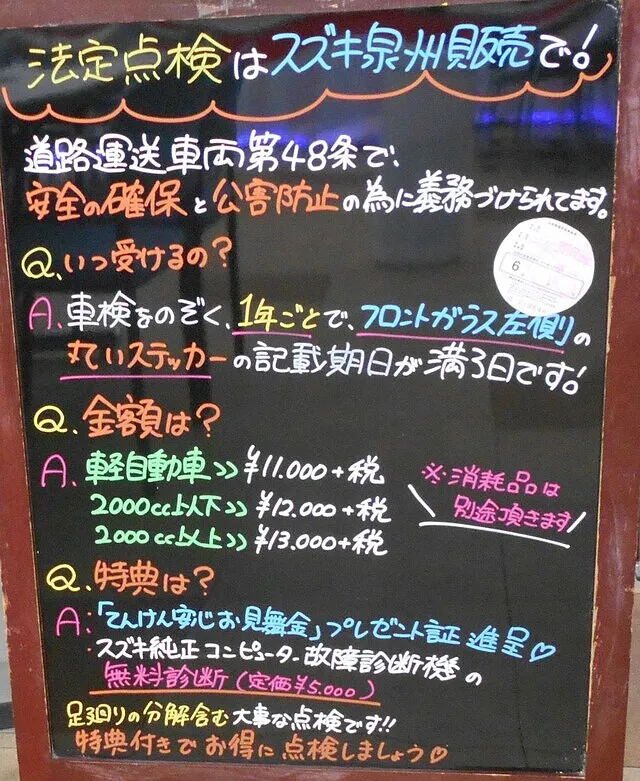 法定点検はスズキ泉州販売で!
道路運送車両第48条で、
安全の確保と公害防止の為に義務づけられてます。
Q.いつ受けるの?
6
A.車検をのぞく、1年ごとで、フロントガラス左側の
丸いステッカーの記載期日が満了日です!
Q.金額は?
A.軽自動車>>¥11.000+税
2000cc以下>>¥12.000+税
2000cc以上>>¥13.000+税
※消耗品は
別途頂きます
Q.特典は?
A.・「てんけん安心お見舞金」プレゼント証 進呈♡
・スズキ純正コンピューター故障診断機の
無料診断(定価¥5.000)
足回りの分解含む大事な点検です!!
特典付きでお得に点検しましょう♡